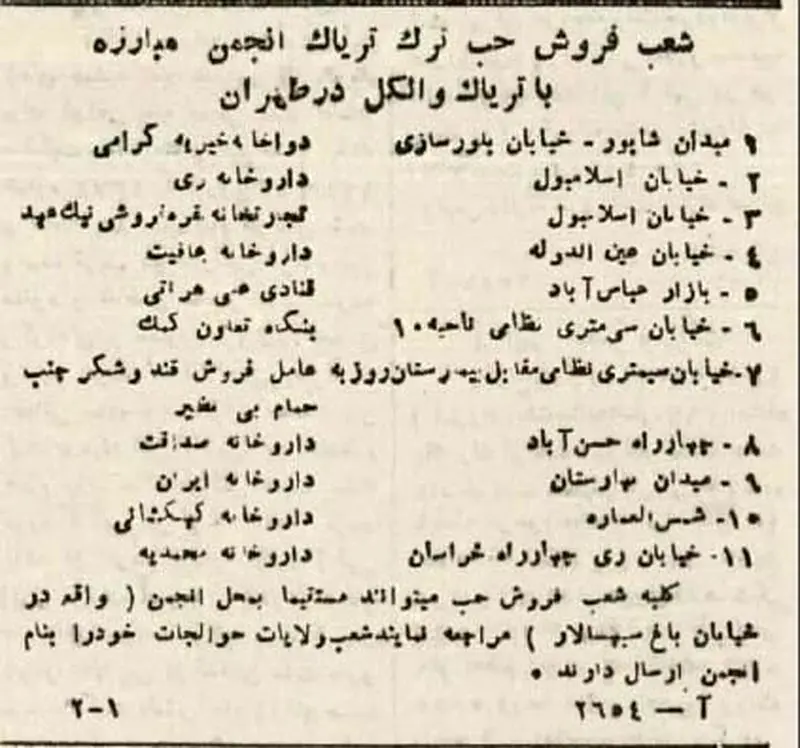 شعب فروش حب ترك ترياك انجمن مبارزه
با ترياك و الكل در طهران
۱ ميدان شاپور - خيابان بلورسازی دواخانه خيريه گرامی
۲ - خيابان اسلامبول داروخانه ری
۳ - خيابان اسلامبول تجارتخانه نقره فروشی نيك عهد
۴ - خيابان عين الدوله داروخانه عافيت
۵ - بازار عباس آباد قنادی علی هراتی
۶ - خيابان سی متری نظامی ناحيه ۱۰ بنگاه تعاون كمك
۷- خيابان سيمتری نظامی مقابل بيمارستان روزبه عامل فروش قند و شكر جنب
حمام بی نظير
۸ - چهارراه حسن آباد داروخانه صداقت
۹ - ميدان بهارستان داروخانه ايران
۱۰- شمس العماره داروخانه كهكشانی
۱۱- خيابان ری چهارراه خراسان داروخانه محمديه
كليه شعب فروش حب ميتوانند مستقيما بمحل انجمن ( واقعه در
خيابان باغ سپهسالار ) مراجعه نمايند شعب ولايات حوالجات خود را بنام
انجمن ارسال دارند ۰
آ — ۲۶۵۴ ۲-۱